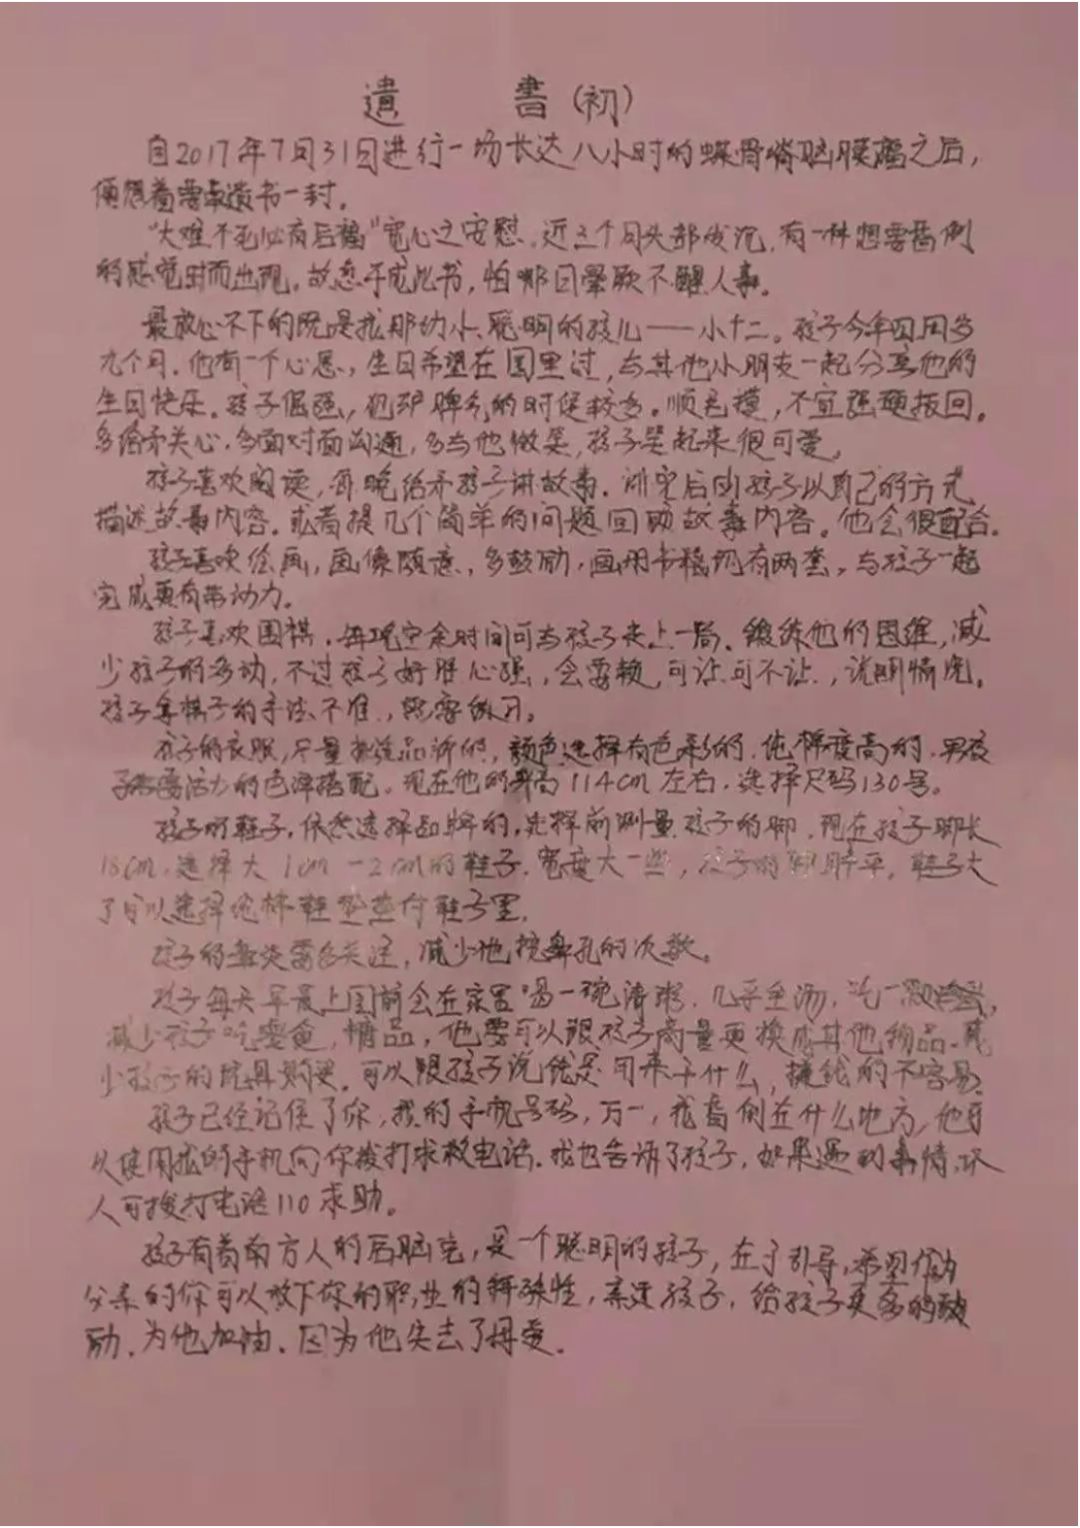 遺 書(初)
自2017年7月31日进行一场长达八小时的蝶骨嵴脑膜瘤之后，
便想着要遗书一封。
“大难不死必有后福”宽心之安慰，近三个月头部发沉，有一种想要昏倒
的感觉时而出现。故急于成此书，怕哪日晕厥不醒人事。
最放心不下的既是我那幼小、聪明的孩儿——小十二。孩子今年四周多
九个月，他有一个心愿，生日希望在园里过，与其他小朋友一起分享他的
生日快乐。孩子倔强，脾气的时候较多。顺毛摸，不宜强硬扳回。
多给予关心，多面对面沟通，多与他微笑，孩子笑起来很可爱。
孩子喜欢阅读，每晚给予孩子讲故事。讲完后由孩子以自己的方式
描述故事内容。或者提几个简单的问题回助故事内容。他会很配合。
孩子喜欢绘画，画像随意，多鼓励，画用书稿现有两套，与孩子一起
完成更有带动力。
孩子喜欢围棋，每晚空余时间可与孩子来上一局。锻练他的思维，减
少孩子的多动，不过孩子好胜心强，会耍赖，可让可不让，说明情况。
孩子拿棋子的手法不准，需练习。
孩子的衣服，尽量挑选品牌的，颜色选择有色彩的，纯棉度高的，男孩
子需要活力的色泽搭配。现在他的身高114cm左右，选择尺码130号。
孩子的鞋子，依然选择品牌的，选择前测量孩子的脚，现在孩子脚长
18cm，选择大1cm－2cm的鞋子，宽度大一些，孩子的脚平，鞋子大
了可以选择纯棉鞋垫垫付鞋子里。
孩子的鼻炎需多关注，减少他挖鼻孔的次数。
孩子每天早晨上园前会在家里喝一碗清粥，几乎全汤，
减少孩子吃零食，糖品，他要可以跟孩子商量更换成其他物品。减
少孩子的玩具购买，可以跟孩子说钱是用来干什么，挣钱的不容易。
孩子已经记住了你，我的手机号码，万一，我昏倒在什么地方，他可
以使用我的手机向你拨打求救电话。我也告诉了孩子，如果遇到事情，坏
人可拨打电话110求助。
孩子有着南方人的后脑壳，是一个聪明的孩子，在于引导，希望作为
父亲的你可以放下你的职业的特殊性，亲近孩子，给孩子更多的鼓
励，为他加油。因为他失去了母爱。